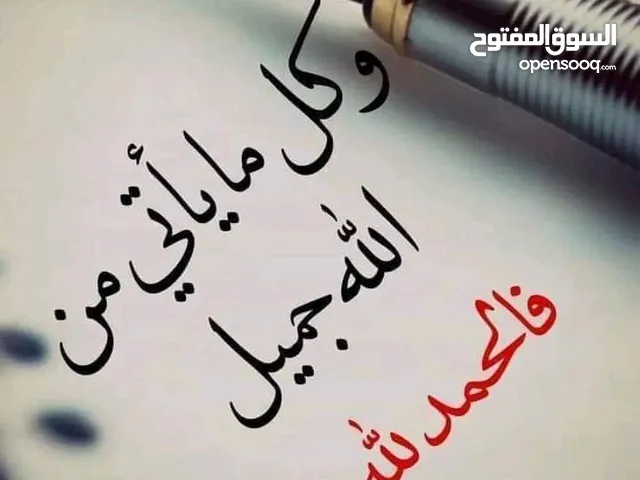 السوق المفتوح
opensooq.com
وكل ما يأتي من
الله جميل
فالحمد لله